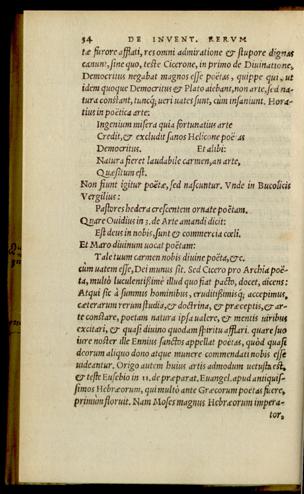 34 DE INVENT. RERVM
tæ furore afflati, res omni admiratione & stupore dignas
canunt, sine quo, teste Cicerone, in primo de Diuinatione,
Democritus negabat magnos esse poëtas, quippe qui, ut
idem quoque Democritus & Plato aiebant, non arte, sed na-
tura constāt, tuncq; ueri uates sunt, cùm insaniunt. Hora-
tius in poëtica arte:
Ingenium misera quia fortunatius arte
Credit, & excludit sanos Helicone poëtas
Democritus. Et alibi:
Natura fieret laudabile carmen, an arte,
Quæsitum est.
Non fiunt igitur poëtæ, sed nascuntur. Vnde in Bucolicis
Vergilius:
Pastores hedera crescentem ornate poëtam.
Quare Ouidius in 3. de Arte amandi dicit:
Est deus in nobis, sunt & commercia cœli.
Et Maro diuinum uocat poëtam:
Tale tuum carmen nobis diuine poëta, &c.
cùm uatem esse, Dei munus sit. Sed Cicero pro Archia poë-
ta, multò luculentißimè illud quo fiat pacto, docet, dicens:
Atqui sic à summis hominibus, eruditißimisq; accepimus,
cæterarum rerum studia, & doctrina, & præceptis, & ar-
te constare, poëtam natura ipsa ualere, & mentis uiribus
excitari, & quasi diuino quodam spiritu afflari. quare suo
iure noster ille Ennius sanctos appellat poëtas, quòd quasi
deorum aliquo dono atque munere commendati nobis esse
uideantur. Origo autem huius artis admodum uetusta est,
& teste Eusebio in 11. de præparat. Euangel. apud antiquis-
simos Hebræorum, qui multò ante Græcorum poëtas fuere,
primùm floruit. Nam Moses magnus Hebræorum impera-
tor,